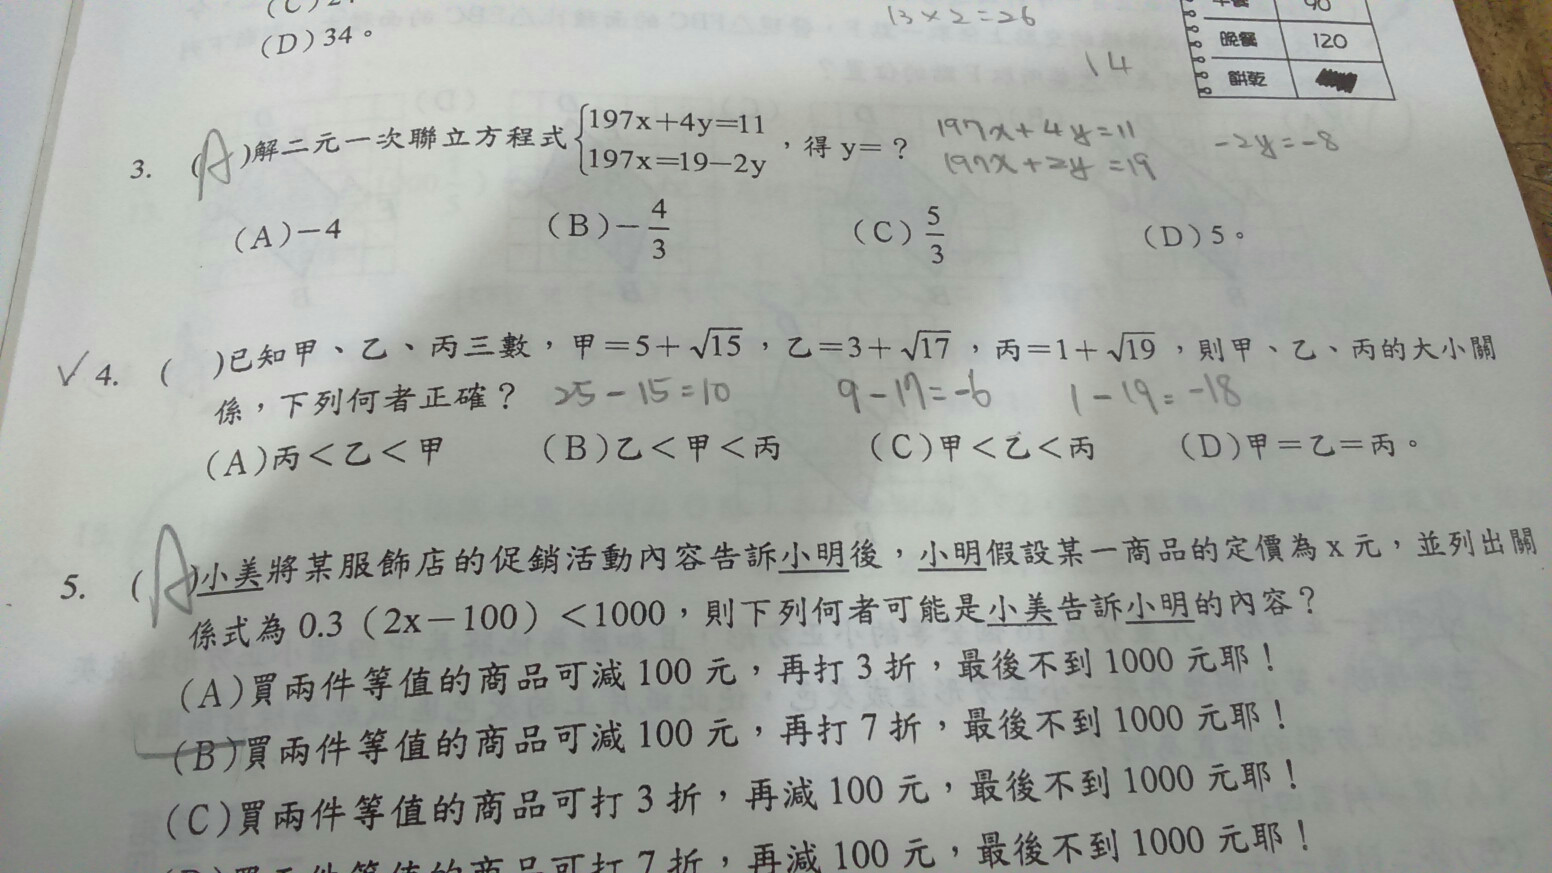 (D) 34。
13×2=26
14
90
晚餐 120
餅乾
3. (A)解二元一次聯立方程式{197x+4y=11 197x=19-2y，得y=？
197x+4y=11
197x+2y=19
-2y=-8
(A)-4 (B)-4/3 (C)5/3 (D)5。
✓4. ( )已知甲、乙、丙三數，甲=5+√15，乙=3+√17，丙=1+√19，則甲、乙、丙的大小關
係，下列何者正確？ 25-15=10 9-17=-6 1-19=-18
(A)丙<乙<甲 (B)乙<甲<丙 (C)甲<乙<丙 (D)甲=乙=丙。
5. (A)小美將某服飾店的促銷活動內容告訴小明後，小明假設某一商品的定價為x元，並列出關
係式為0.3（2x-100）<1000，則下列何者可能是小美告訴小明的內容？
(A)買兩件等值的商品可減100元，再打3折，最後不到1000元耶！
(B)買兩件等值的商品可減100元，再打7折，最後不到1000元耶！
(C)買兩件等值的商品可打3折，再減100元，最後不到1000元耶！
買兩件等值的商品可打7折，再減100元，最後不到1000元耶！